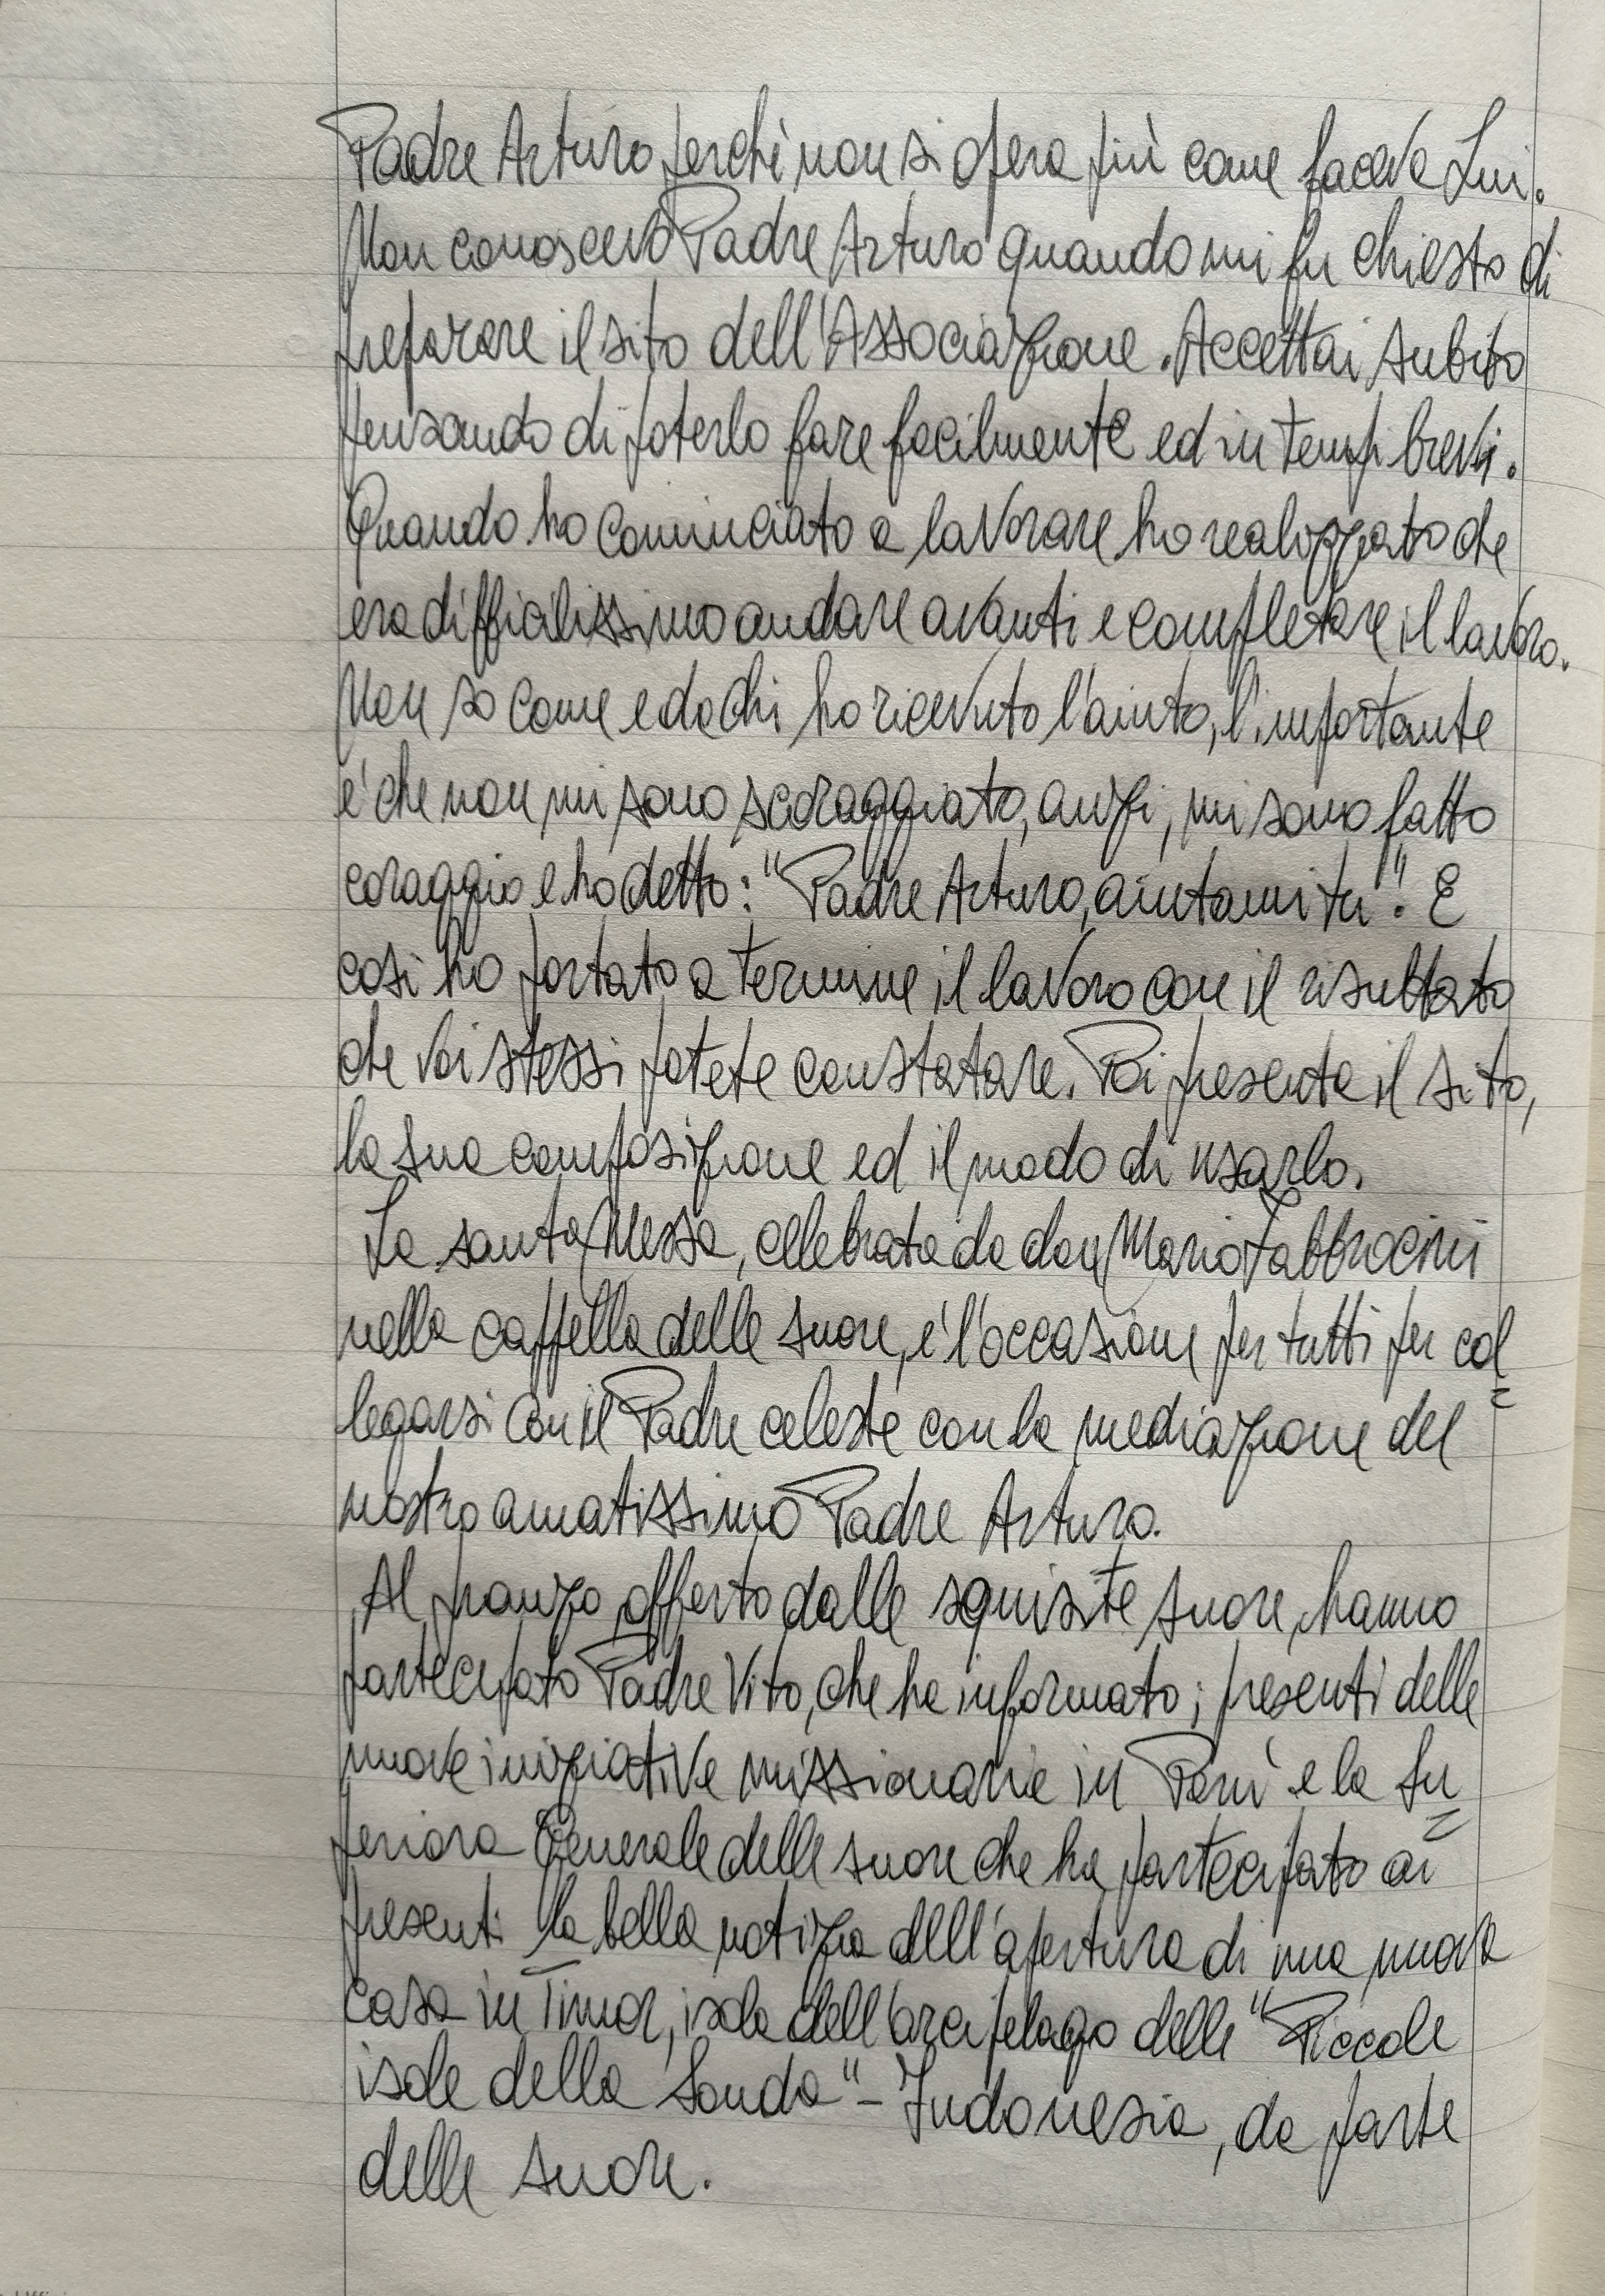 Padre Arturo perchè non si opera più come faceva Lui.
Non conoscevo Padre Arturo quando mi fu chiesto di
preparare il sito dell'Associazione. Accettai subito
pensando di poterlo fare facilmente ed in tempi brevi.
Quando ho cominciato a lavorare ho realizzato che
era difficilissimo andare avanti e completare il lavoro.
Non so come e da chi ho ricevuto l'aiuto, l'importante
è che non mi sono scoraggiato, anzi, mi sono fatto
coraggio e ho detto: "Padre Arturo, aiutami tu". E
così ho portato a termine il lavoro con il risultato
che voi stessi potete constatare. Poi presenta il sito,
la sua composizione ed il modo di usarlo.
La santa Messa, celebrata da don Mario Fabbrocini
nella cappella delle suore, è l'occasione per tutti per col=
legarsi con il Padre celeste con la mediazione del
nostro amatissimo Padre Arturo.
Al pranzo, offerto dalle squisite suore, hanno
partecipato Padre Vito, che ha informato i presenti delle
nuove iniziative missionarie in Perù e la Su=
periora Generale delle suore che ha partecipato ai
presenti la bella notizia dell'apertura di una nuova
casa in Timor, isola dell'arcipelago delle "Piccole
isole della Sonda" - Indonesia, da parte
delle suore.